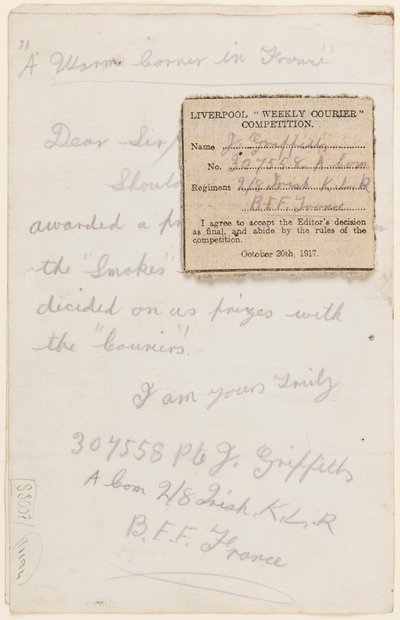 "A Warm Corner in France"
Dear Sir,
Should
awarded a
the "Smokes"
decided on as prizes with
the "Couriers".
I am yours Truly
307558 Pte J. Griffiths
A Com 2/8 Irish. K. L. R
B. E. F. France
LIVERPOOL "WEEKLY COURIER"
COMPETITION.
Name J. Griffiths
No. 307558. A Com
Regiment 2/8 Irish K L R
B.E.F. France
I agree to accept the Editor's decision
as final, and abide by the rules of the
competition.
October 20th, 1917.